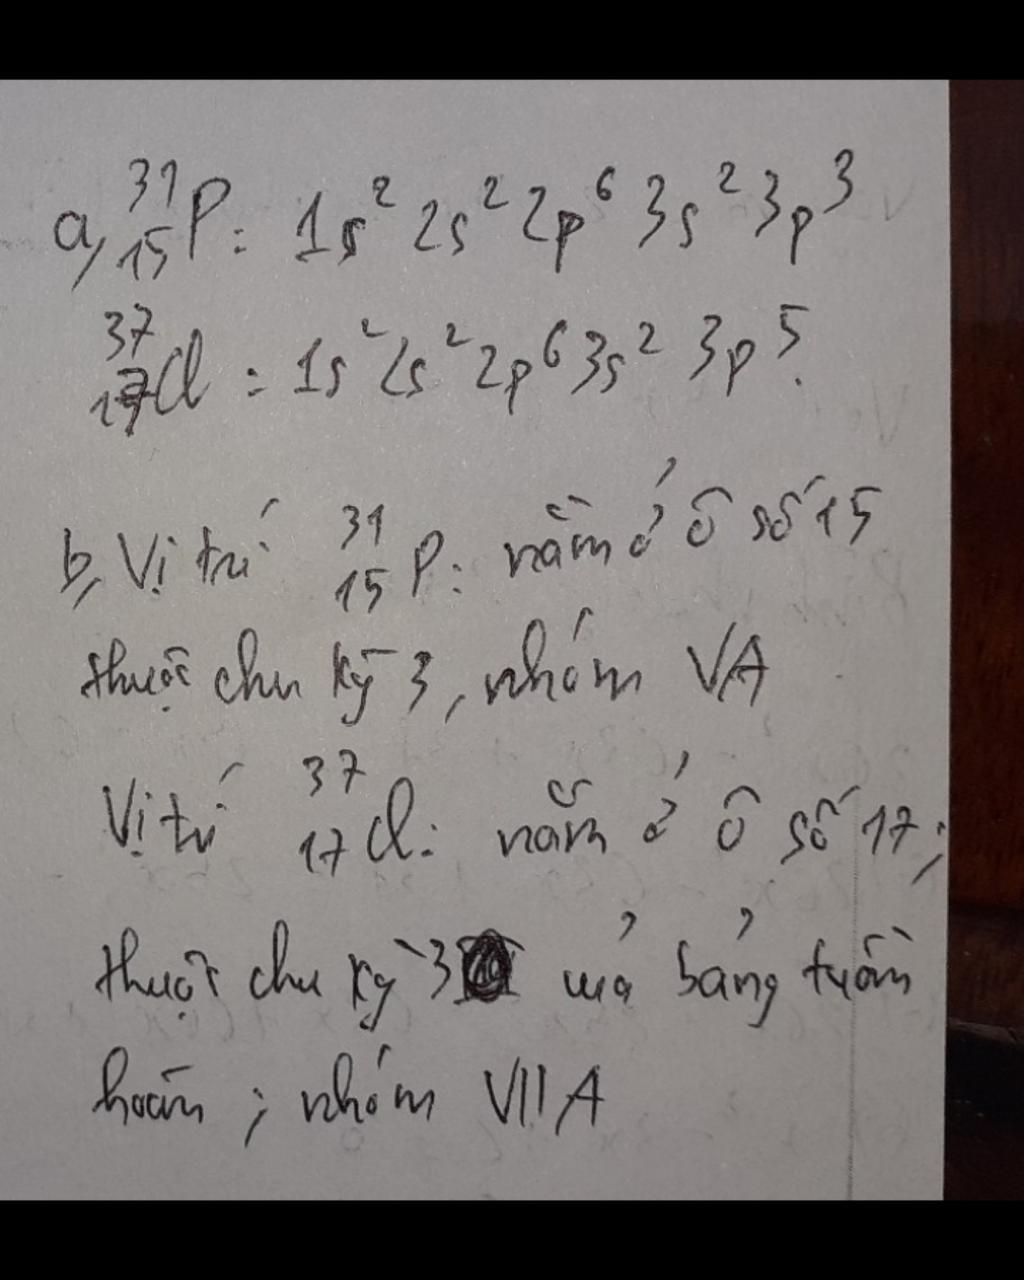 a, ³¹₁₅P: 1s² 2s² 2p⁶ 3s² 3p³
³⁷₁₇Cl: 1s² 2s² 2p⁶ 3s² 3p⁵.
b, Vị trí ³¹₁₅P: nằm ở ô số 15
thuộc chu kỳ 3, nhóm VA
Vị trí ³⁷₁₇Cl: nằm ở ô số 17;
thuộc chu kỳ 3 của bảng tuần
hoàn; nhóm VIIA